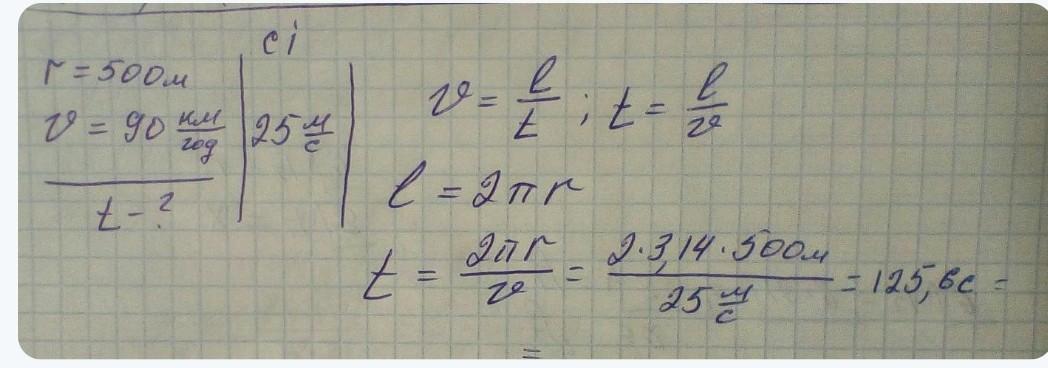 сі
r = 500м
v = 90 км/год
25 м/с
t - ?
v = l/t ; t = l/v
l = 2πr
t = 2πr/v = 2·3,14·500м / 25 м/с = 125,6с =
=